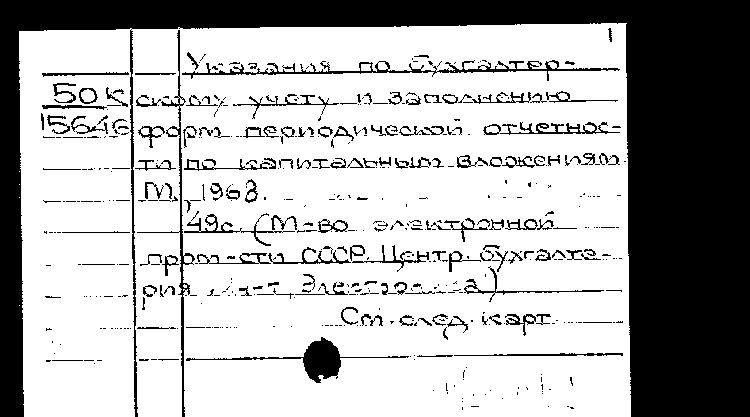 1
Указания по бухгалтер-
50К скому учету и заполнению
15646 форм периодической отчетнос-
ти по капитальным вложениям
М., 1968.
49с. (М-во электронной
пром-сти СССР. Центр. бухгалте-
рия
См. след. карт.